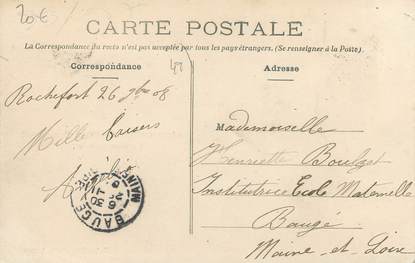 20€
CARTE POSTALE
La Correspondance du recto n'est pas acceptée par tous les pays étrangers. (Se renseigner à la Poste).
Correspondance
Adresse
49
Rochefort 26 9bre 08
Mille baisers
Mademoiselle
Henriette Boulzat
Institutrice Ecole Maternelle
Baugé
Maine-et-Loire
BAUGÉ
MAINE